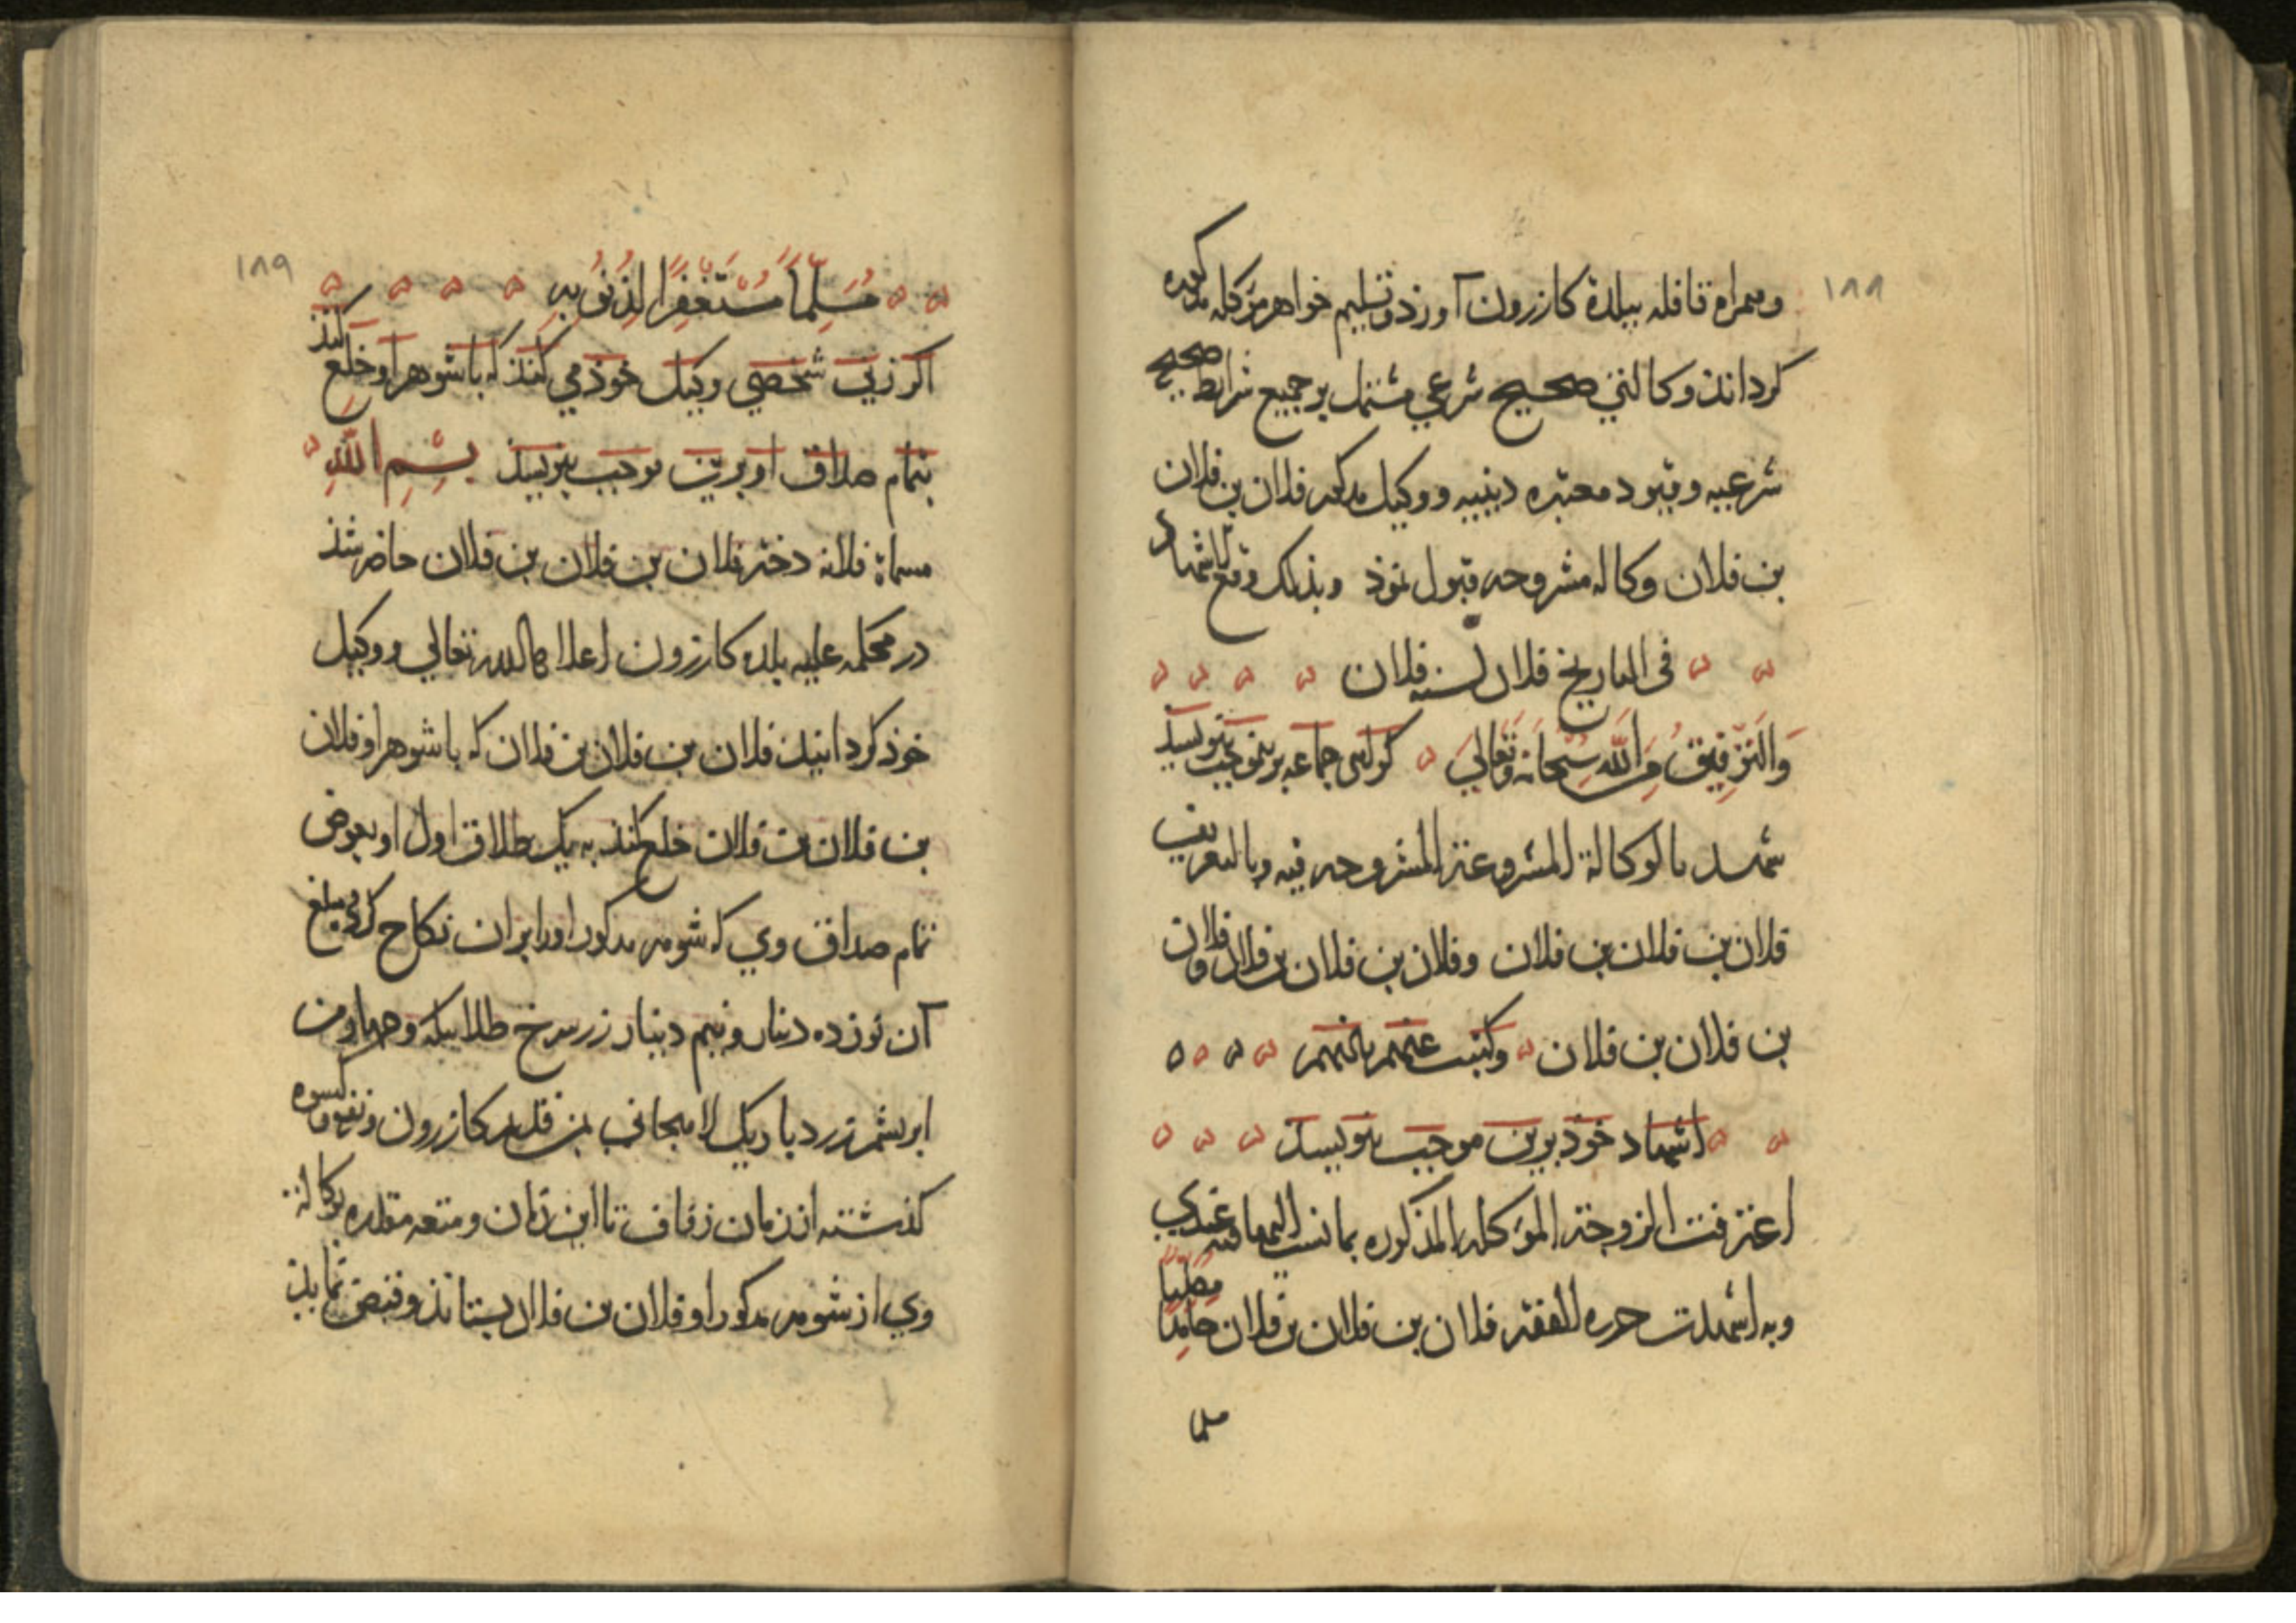 ١٨٨
وهمراه قافله ببلدة كازرون آورد و تسليم خواهر موكله مذكوره
كرداند وكالتي صحيح شرعي مشتمل بر جميع شرايط صحيح
شرعيه و قيود معتبره دينيه و وكيل مذكور فلان بن فلان
بن فلان وكاله مشروحه قبول نموذ وبذلك وقع الاشهاد
في التاريخ فلان لسنه فلان
وَالتَّوفِيقُ مِنَ اللهِ سُبْحَانَهُ وَتَعَالىَ كواهى جماعه برينموجب بنويسند
شهد بالوكالة المشروعة المشروحه فيه وبالتعريف
فلان بن فلان بن فلان وفلان بن فلان بن فلان وفلان
بن فلان بن فلان وكتبت عنهم باذنهم
اشهاد خوذ برين موجب بنويسد
اعترفت الزوجة الموكله المذكوره بما نسب اليها فيه عندي
وبه اشهدت حرره الفقير فلان بن فلان بن فلان حَامِدًا مُصَلِّيًا
مسلما
١٨٩
مُسَلِّمًا مُسْتَغْفِرًا لِذُنُوبِهِ
اكر زني شخصي وكيل خوذ مي كند كه با شوهر او خلع كند
بتمام صداق او برين موجب بنويسد بِسْمِ اللهِ
مسماة فلانه دختر فلان بن فلان بن فلان حاضر شذ
در محكمه عليه بلده كازرون اعلاها الله تعالي و وكيل
خوذ كردانيد فلان بن فلان بن فلان كه با شوهر او فلان
بن فلان بن فلان خلع كند به يك طلاق اول او بعوض
تمام صداق وي كه شوهر مذكور او را بر ان نكاح كرده مبلغ
آن نوزده دينار ونيم دينار زر سرخ طلا بيكه و چهار من
ابريشم زرد باريك لاهيجاني بمن قديم كازرون و نفقه و كسوه
كذشته از زمان زفاف تا اين زمان و متعه مقدره بوكالة
وي از شوهر مذكور او فلان بن فلان بستاند و قبض نمايذ